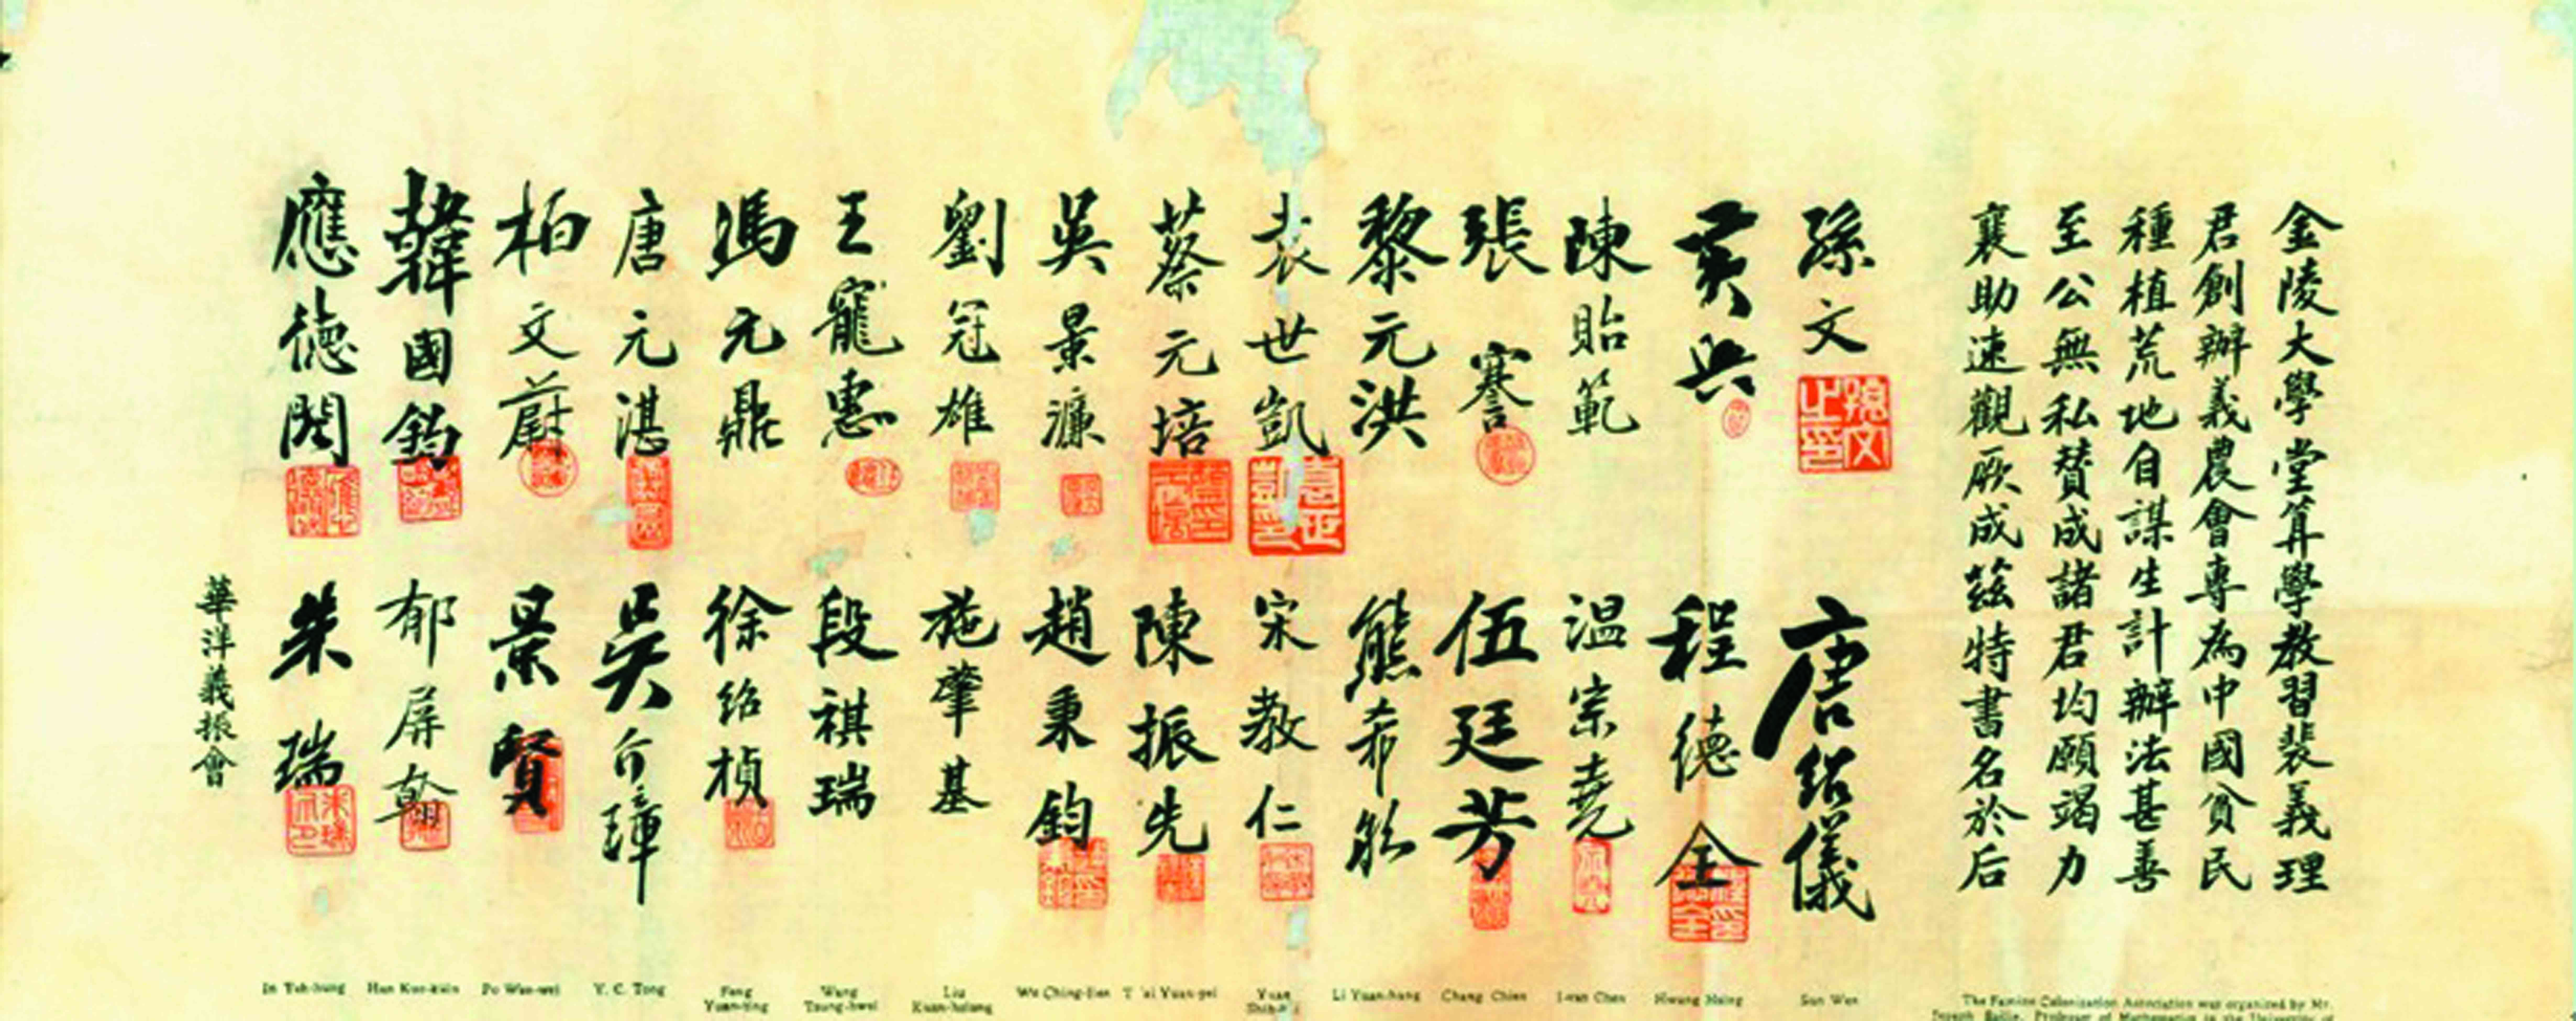 金陵大學堂算學教習裴義理
君創辦義農會專為中國貧民
種植荒地自謀生計辦法甚善
至公無私贊成諸君均願竭力
襄助速觀厥成茲特書名於后
孫文
唐紹儀
黃興
程德全
陳貽範
溫宗堯
張謇
伍廷芳
黎元洪
熊希齡
袁世凱
宋教仁
蔡元培
陳振先
吳景濂
趙秉鈞
劉冠雄
施肇基
王寵惠
段祺瑞
馮元鼎
徐紹楨
唐元湛
吳介璋
柏文蔚
景賢
韓國鈞
郁屏翰
應德閎
朱瑞
華洋義振會
孫文之印
In Teh-hung
Han Kuo-kuin
Po Wen-wei
Y. C. Tong
Feng Yuan-ting
Wang Tsung-hwei
Liu Kuan-hsiung
Wu Ching-lien
T'ai Yuan-pei
Yuan Shih-k'ai
Li Yuan-hung
Chang Chien
Ivan Chen
Hwang Hsing
Sun Wen
The Famine Colonization Association was organized by Mr.
Joseph Bailie, Professor of Mathematics in the University of